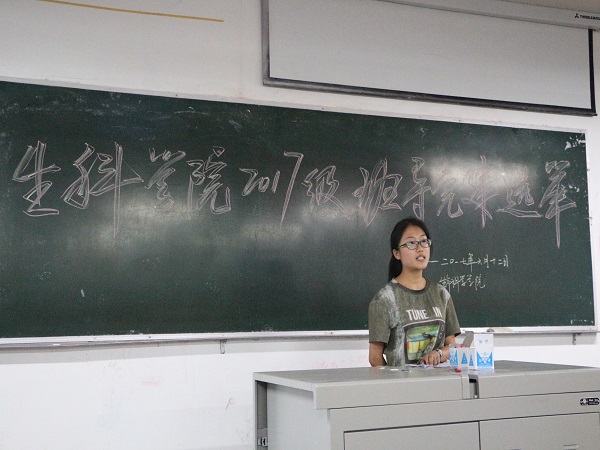 生科学院2017级班导竞选选举
—二〇一七年六月十二日
生科学院
TUNE IN